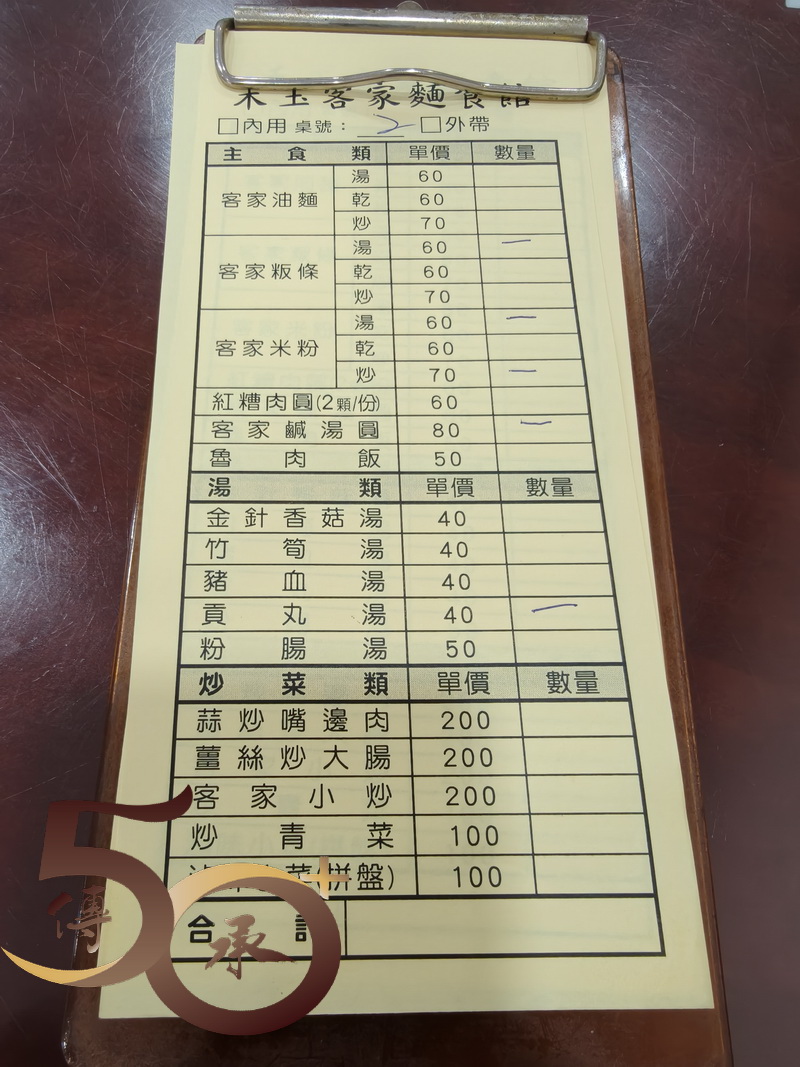 玉客家麵食館
□內用 桌號：2 □外帶
主食類 單價 數量
客家油麵 湯 60
乾 60
炒 70
客家粄條 湯 60 一
乾 60
炒 70
客家米粉 湯 60 一
乾 60
炒 70 一
紅糟肉圓(2顆/份) 60
客家鹹湯圓 80 一
魯肉飯 50
湯類 單價 數量
金針香菇湯 40
竹筍湯 40
豬血湯 40
貢丸湯 40 一
粉腸湯 50
炒菜類 單價 數量
蒜炒嘴邊肉 200
薑絲炒大腸 200
客家小炒 200
炒青菜 100
菜(拼盤) 100
合計
50+
傳承